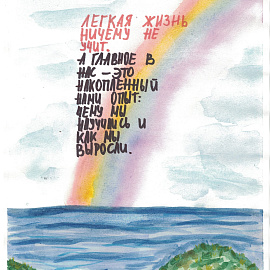 ЛЕГКАЯ ЖИЗНЬ
НИЧЕМУ НЕ
УЧИТ.
А ГЛАВНОЕ В
НАС – ЭТО
НАКОПЛЕННЫЙ
НАМИ ОПЫТ:
ЧЕМУ МЫ
НАУЧИЛИСЬ И
КАК МЫ
ВЫРОСЛИ.